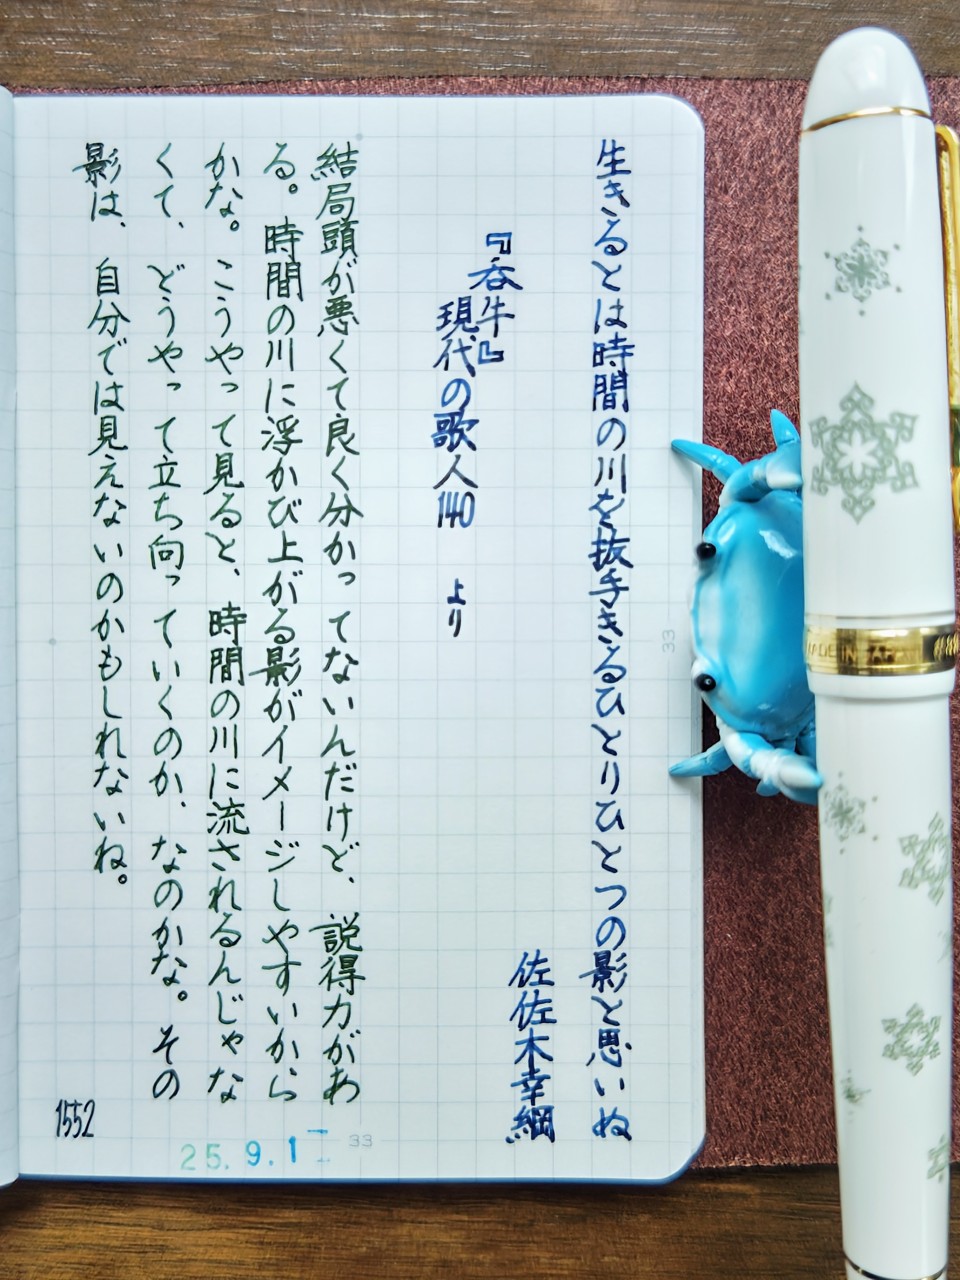 生きるとは時間の川を抜手きるひとりひとつの影と思いぬ
佐佐木幸綱
『呑牛』
現代の歌人140 より
結局頭が悪くて良く分かってないんだけど、説得力があ
る。時間の川に浮かび上がる影がイメージしやすいから
かな。こうやって見ると、時間の川に流されるんじゃな
くて、どうやって立ち向っていくのか、なのかな。その
影は、自分では見えないのかもしれないね。
1552
25.9.1
33
33
MADE IN JAPAN